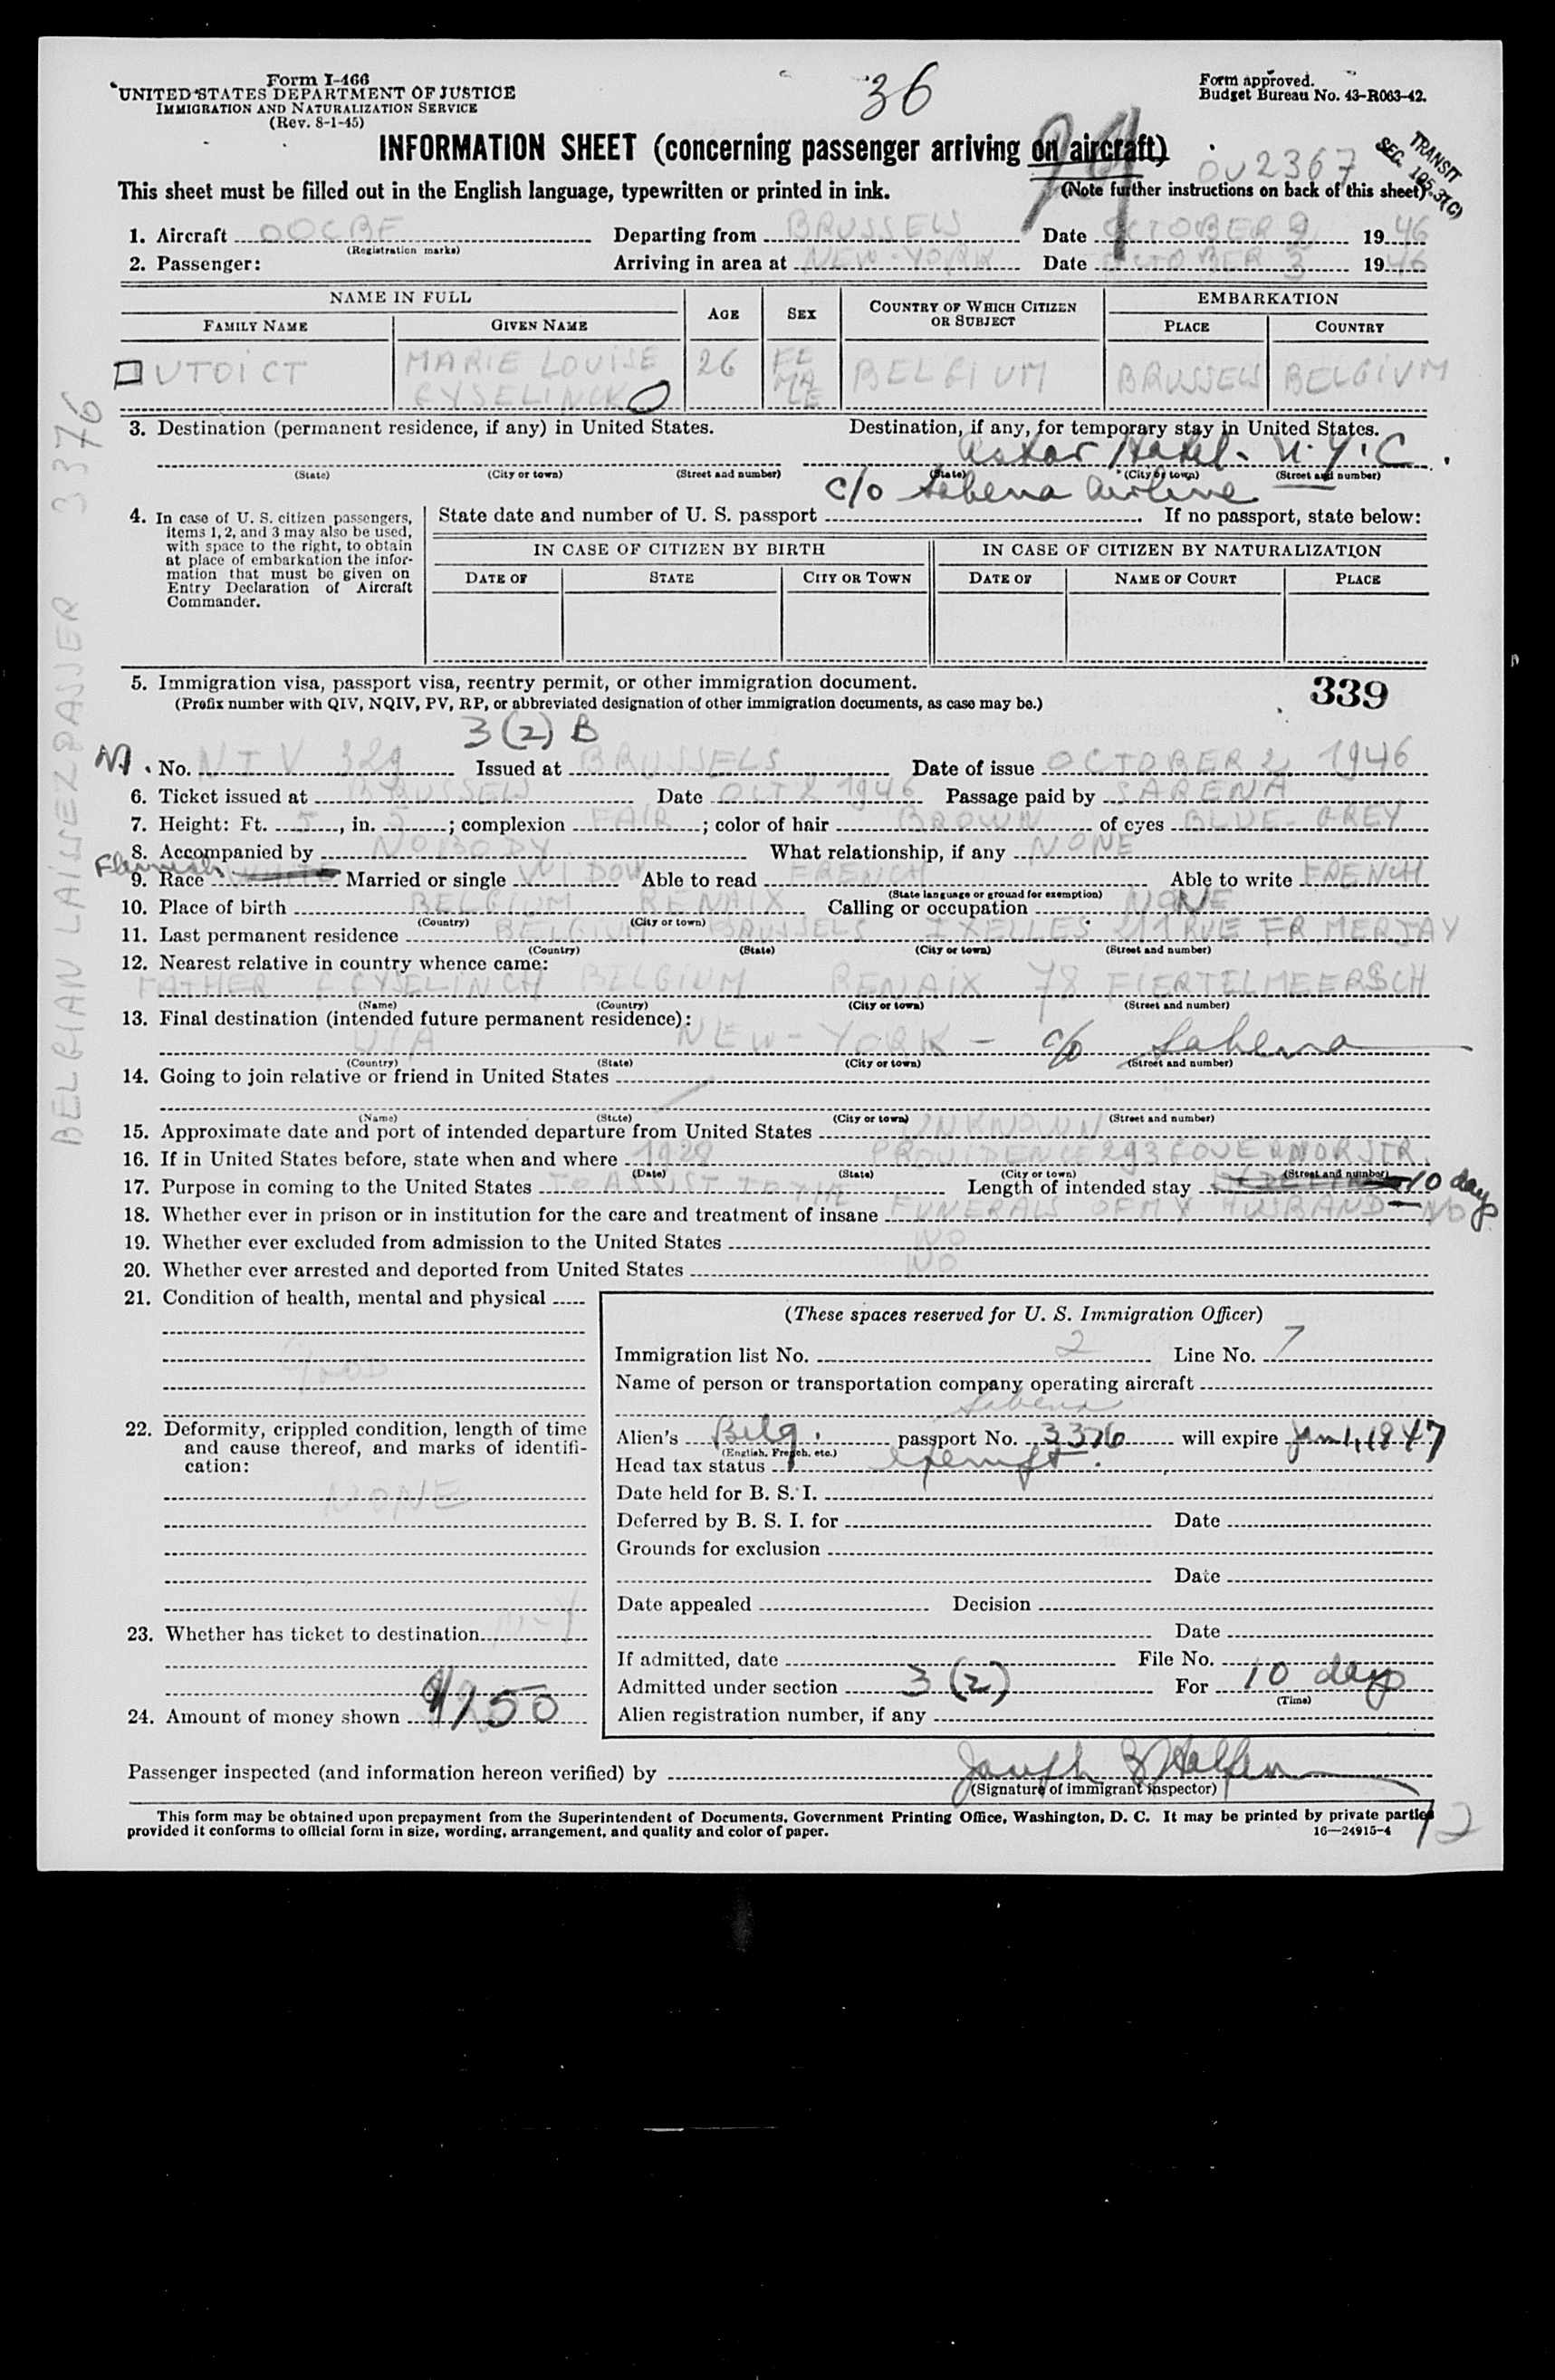 Form I-466
UNITED STATES DEPARTMENT OF JUSTICE
IMMIGRATION AND NATURALIZATION SERVICE
(Rev. 8-1-45)
36
Form approved.
Budget Bureau No. 43-R063-42.
INFORMATION SHEET (concerning passenger arriving on aircraft)
OU 2367
TRANSIT
SEC. 105.3(C)
This sheet must be filled out in the English language, typewritten or printed in ink. (Note further instructions on back of this sheet)
1. Aircraft OOCBE Departing from BRUSSELS Date OCTOBER 2 1946
(Registration marks)
2. Passenger: Arriving in area at NEW-YORK Date OCTOBER 3 1946
NAME IN FULL AGE SEX COUNTRY OF WHICH CITIZEN OR SUBJECT EMBARKATION
FAMILY NAME GIVEN NAME PLACE COUNTRY
DUTOICT MARIE LOUISE EYSELINCK 26 FEMALE BELGIUM BRUSSELS BELGIUM
3. Destination (permanent residence, if any) in United States. Destination, if any, for temporary stay in United States.
Astor Hotel - N.Y.C.
(State) (City or town) (Street and number) (State) (City or town) (Street and number)
c/o Sabena Airline
4. In case of U. S. citizen passengers, items 1, 2, and 3 may also be used, with space to the right, to obtain at place of embarkation the information that must be given on Entry Declaration of Aircraft Commander.
State date and number of U. S. passport If no passport, state below:
IN CASE OF CITIZEN BY BIRTH IN CASE OF CITIZEN BY NATURALIZATION
DATE OF STATE CITY OR TOWN DATE OF NAME OF COURT PLACE
5. Immigration visa, passport visa, reentry permit, or other immigration document. 339
(Prefix number with QIV, NQIV, PV, RP, or abbreviated designation of other immigration documents, as case may be.)
3 (2) B
No. NIV 329 Issued at BRUSSELS Date of issue OCTOBER 2, 1946
6. Ticket issued at BRUSSELS Date OCT 2 1946 Passage paid by SABENA
7. Height: Ft. 5, in. 5; complexion FAIR; color of hair BROWN of eyes BLUE-GREY
8. Accompanied by NOBODY What relationship, if any NONE
Flemish
9. Race Married or single WIDOW Able to read FRENCH Able to write FRENCH
(State language or ground for exemption)
10. Place of birth BELGIUM RENAIX Calling or occupation NONE
(Country) (City or town)
11. Last permanent residence BELGIUM BRUSSELS IXELLES 211 RUE FR MERJAY
(Country) (State) (City or town) (Street and number)
12. Nearest relative in country whence came:
FATHER EYSELINCH BELGIUM RENAIX 78 FIERTELMEERSCH
(Name) (Country) (City or town) (Street and number)
13. Final destination (intended future permanent residence):
USA NEW-YORK - c/o Sabena
(Country) (State) (City or town) (Street and number)
14. Going to join relative or friend in United States
(Name) (State) (City or town) (Street and number)
15. Approximate date and port of intended departure from United States UNKNOWN
16. If in United States before, state when and where 1928 PROVIDENCE 293 GOVERNOR STR.
(Date) (State) (City or town) (Street and number)
17. Purpose in coming to the United States TO ASSIST TO THE Length of intended stay 10 days
18. Whether ever in prison or in institution for the care and treatment of insane FUNERALS OF MY HUSBAND - NO
19. Whether ever excluded from admission to the United States NO
20. Whether ever arrested and deported from United States NO
21. Condition of health, mental and physical
GOOD
22. Deformity, crippled condition, length of time and cause thereof, and marks of identification:
NONE
23. Whether has ticket to destination N-Y
24. Amount of money shown $150
(These spaces reserved for U. S. Immigration Officer)
Immigration list No. 2 Line No. 7
Name of person or transportation company operating aircraft
Sabena
Alien's Belg. passport No. 3376 will expire Jan 1, 1947
(English, French, etc.)
Head tax status exempt.
Date held for B. S. I.
Deferred by B. S. I. for Date
Grounds for exclusion
Date
Date appealed Decision
Date
If admitted, date File No.
Admitted under section 3 (2) For 10 days
(Time)
Alien registration number, if any
Passenger inspected (and information hereon verified) by
(Signature of immigrant inspector)
This form may be obtained upon prepayment from the Superintendent of Documents, Government Printing Office, Washington, D. C. It may be printed by private parties
provided it conforms to official form in size, wording, arrangement, and quality and color of paper. 16—24915-4
BELGIAN LAISSEZ PASSER 3376